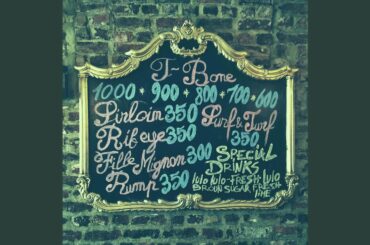 T-Bone
1000 • 900 • 800 • 700 • 600
Sirloin 350
Rib eye 350
Fille Mignon 300
Rump 350
Surf & Turf
350
SPECIAL
DRINKS
lulo lulo-FRESH lulo
BROWN SUGAR FRESH